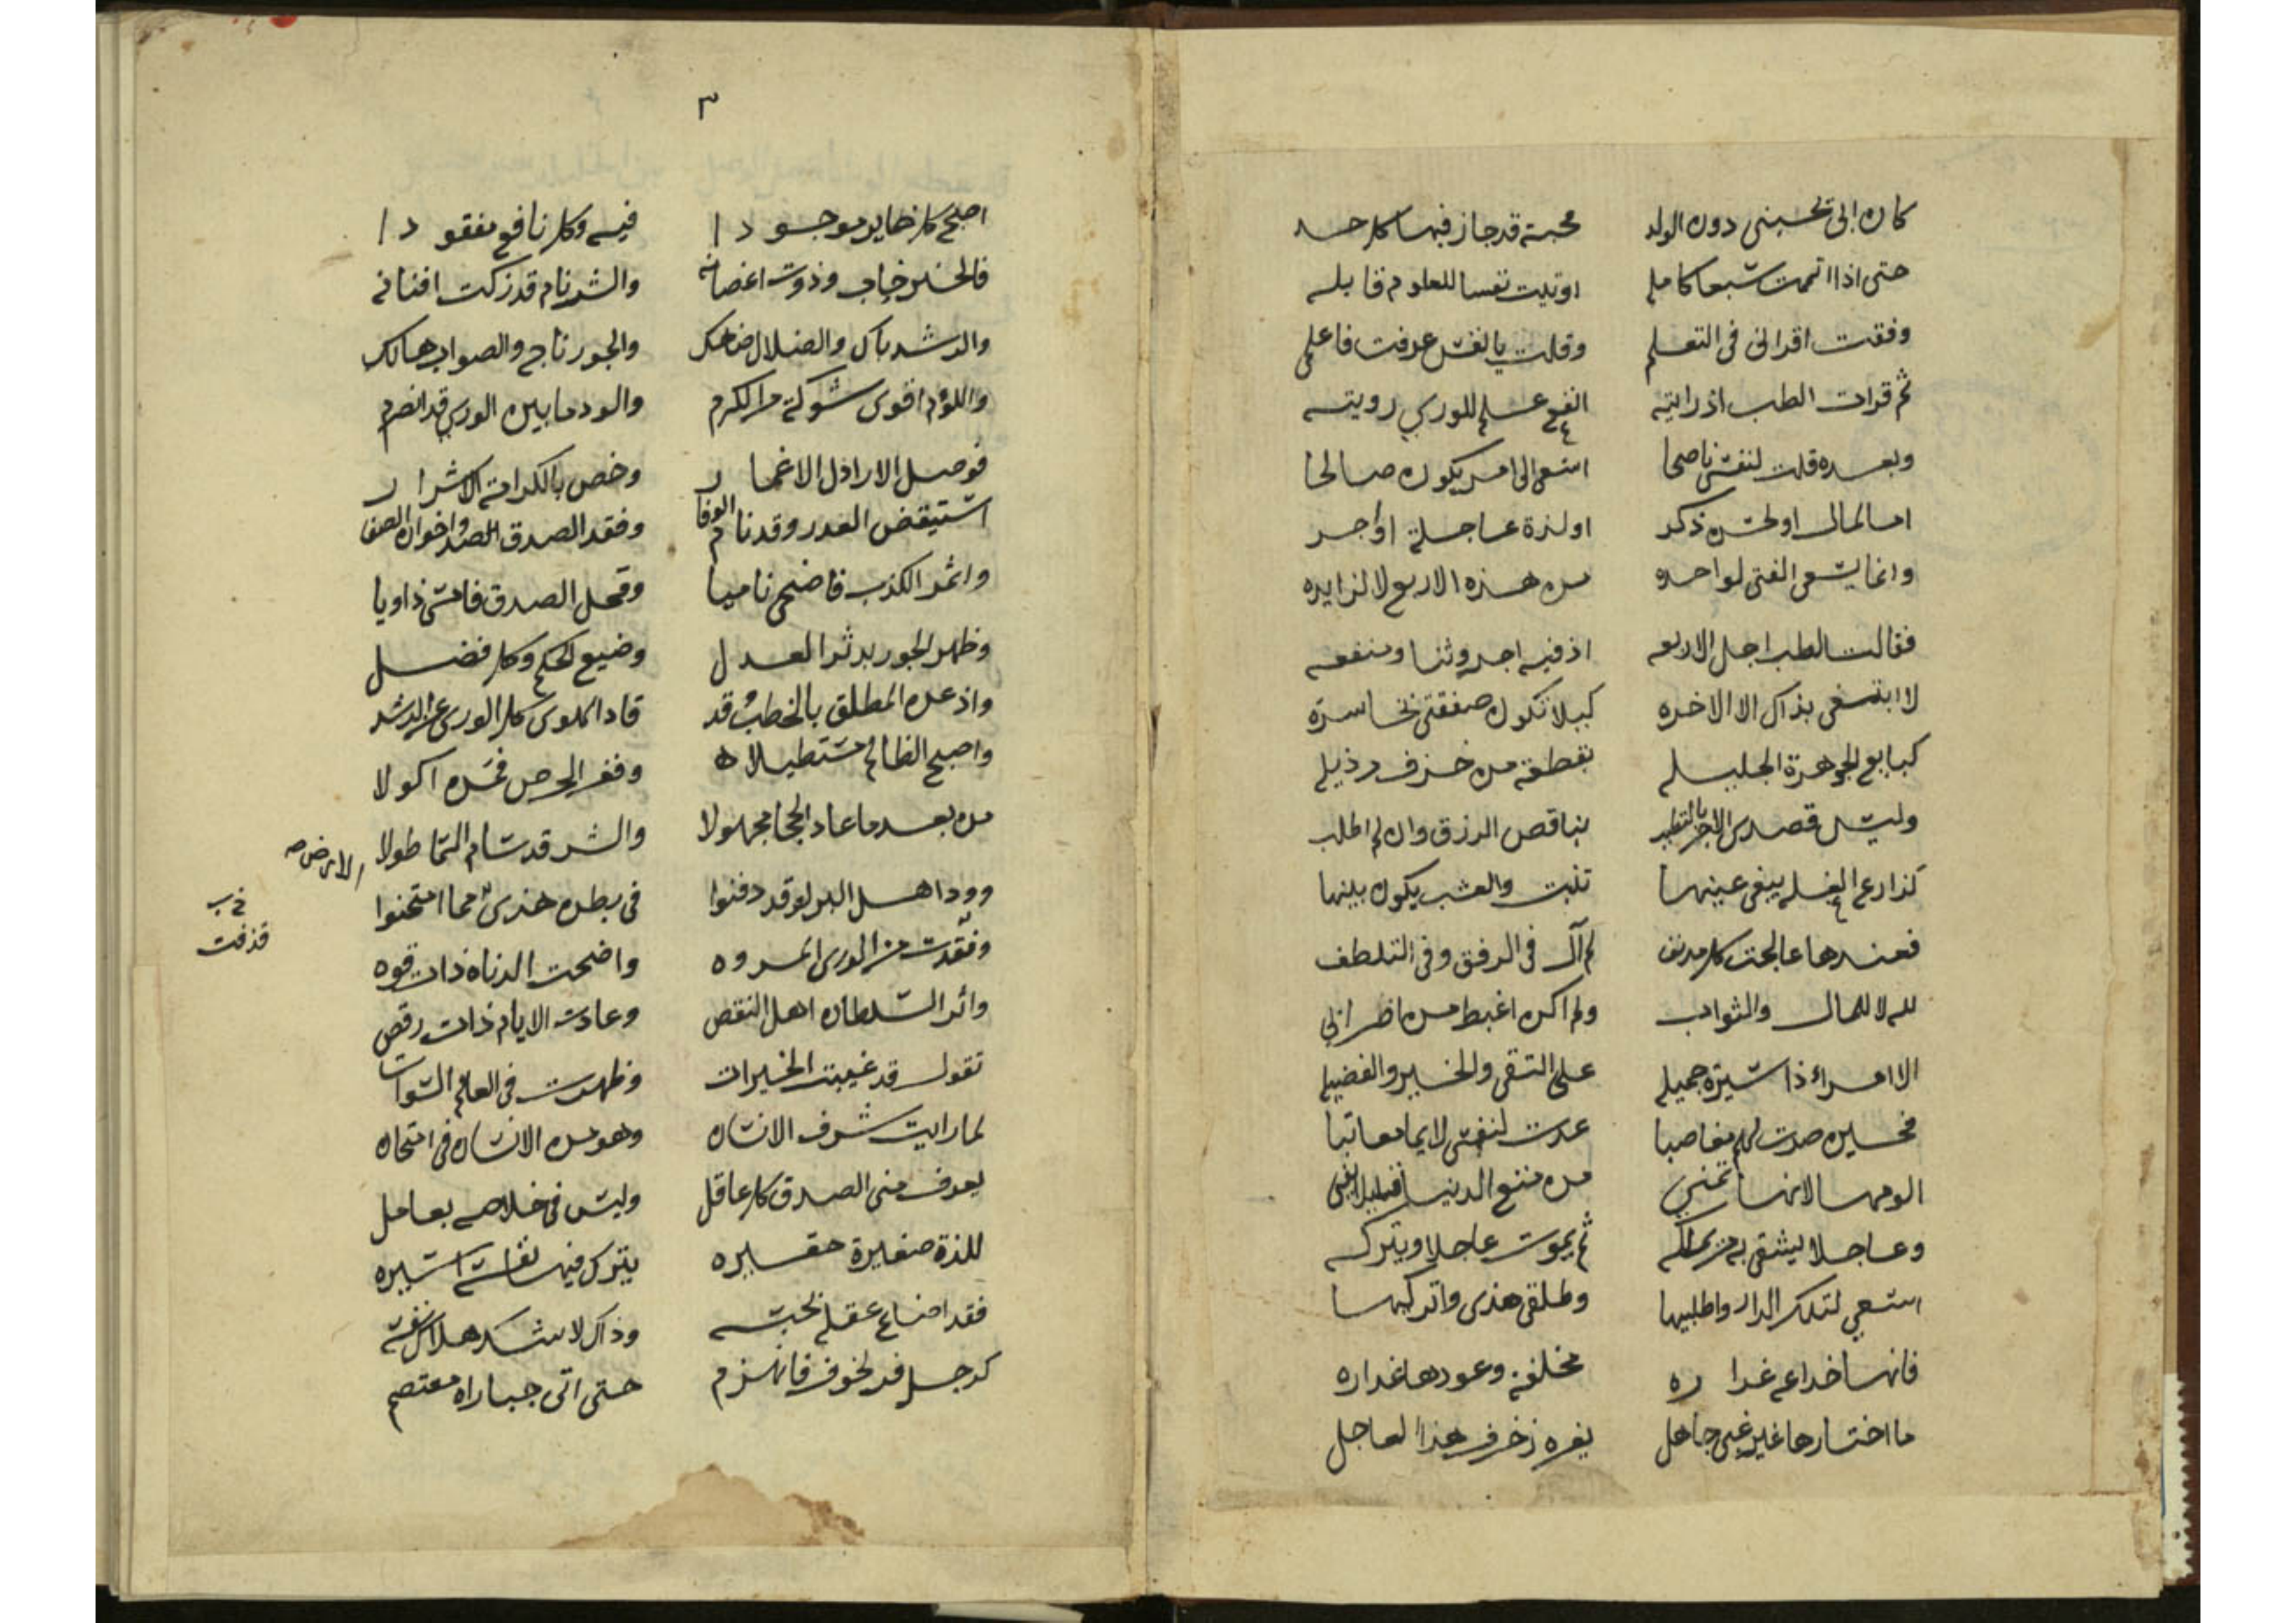 كان ابى يحبنى دون الولد محبة قد جاز فيها كل حد
حتى اذا اتممت سبعا كامله اوتيت نفسا للعلوم قابله
وفقت اقرانى فى التعلم وقلت يا نفس عرفت فاعلمى
ثم قرات الطب اذ رايته انفع علم للورى رويته
وبعده قلت لنفسى ناصحا اسعى الى امر يكون صالحا
اما لمال او لحسن ذكر او لذة عاجلة او اجر
وانما يسعى الفتى لواحده من هذه الاربع لا لزايده
فقالت الطب اجل الاربعه اذ فيه اجر وثنا ومنفعه
لا ابتغى بذاك الا الاخره كيلا تكون صفقتى بخاسرة
كبايع الجوهرة الجليله بقطعة من خزف رذيله
وليس قصدى الاجر بالتطبب بناقص الرزق وان لم اطلب
كزارع الغلة يبغى عينها تنبت والعشب يكون بينها
فعندها عالجت كل مدنف لم آل فى الرفق وفى التلطف
لله لا للمال والثواب ولم اكن اغبط من اضرابى
الا امراء ذا سيرة جميله على التقى والخير والفضيله
فحين صرت لهم مغاصبا عدت لنفسى لايما معاتبا
الومها لانها تمنى من متع الدنيا
وعاجلا يشقى به من يملكه ثم يموت عاجلا ويتركه
اسعى لتلك الدار واطلبيها وطلقى هذى واتركيها
فانها خداعة غداره مخلفة وعودها غداره
ما اختارها غير غبى جاهل يغره زخرف هذا العاجل
٣
اصبح كل ضاير موجودا فيه وكل نافع مفقودا
فالخير خاب وذوت اغصانه والشر نام قد زكت افنانه
والرشد باك والضلال ضاحك والجور ناج والصواب هالك
واللؤم اقوى شوكة من الكرم والود ما بين الورى قد انصرم
فوصل الاراذل الاغمار وخص بالكرامة الاشرار
استيقض الغدر وقد نام الوفا وفقد الصدق واخوان الصفا
واثمر الكذب فاضحى ناميا وقحل الصدق فامسى ذاويا
وظهر الجور بدثر العدل وضيع الحكم وكل فضل
واذعن المطلق بالخطب وقد قاد الهوى كل الورى عن الرشد
واصبح الظالم مستطيلا وفغر الحرص فمن اكولا
من بعد ما عاد الحجا مجهولا والشر قد سام السما طولا
وود اهل البر لو قد دفنوا فى بطن هذى مما امتحنوا
الارض صح
وفقدت من الورى المروه واضحت الدناه ذات قوه
قذفت
واثر السلطان اهل النقص وعادت الايام ذات رقص
تقول قد غيبت الخيرات وظهرت فى العالم السوات
لما رايت شرف الانسان وهو من الانسان فى امتحان
يعرف منى الصدق كل عاقل وليس فى خلاصه بعامل
للذة صغيرة حقيره يترك فيها نفسه اسيره
فقد اضاع عقله بخته وذاك لا شك هلاك نفسه
كرجل فر لخوف فانهزم حتى اتى جبا راه معتصم